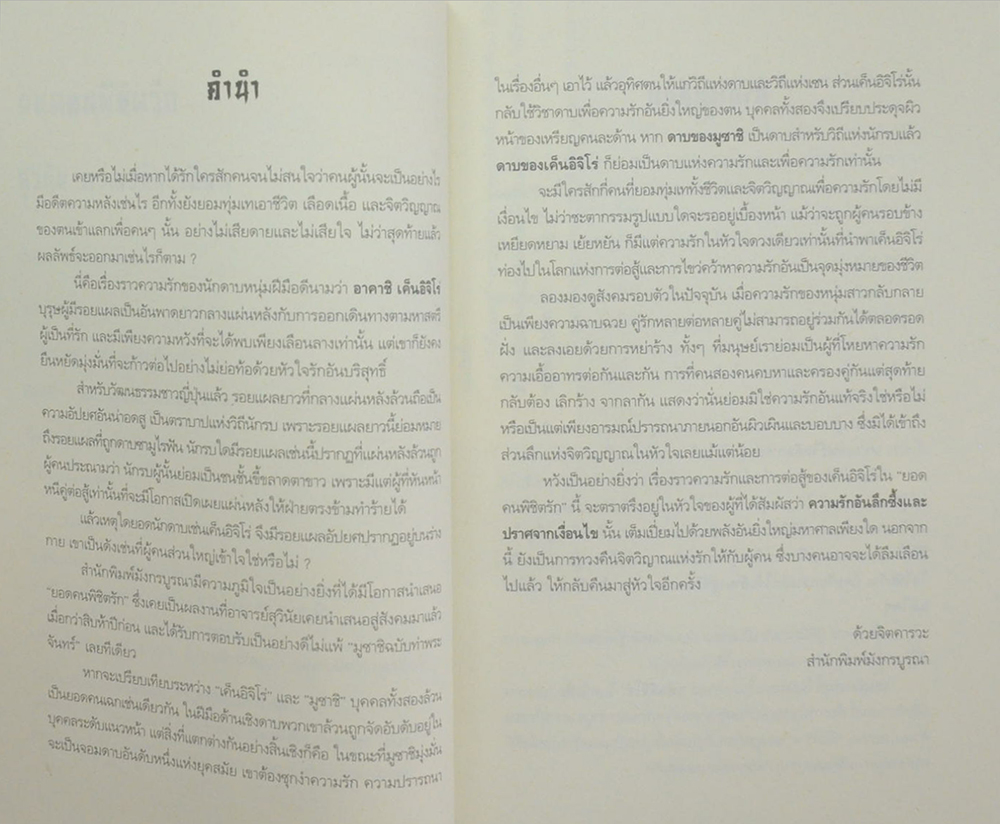 คำนำ
เคยหรือไม่เมื่อหากได้รักใครสักคนจนไม่สนใจว่าคนผู้นั้นจะเป็นอย่างไร
มีอดีตความหลังเช่นไร อีกทั้งยังยอมทุ่มเทเอาชีวิต เลือดเนื้อ และจิตวิญญาณ
ของตนเข้าแลกเพื่อคนๆ นั้น อย่างไม่เสียดายและไม่เสียใจ ไม่ว่าสุดท้ายแล้ว
ผลลัพธ์จะออกมาเช่นไรก็ตาม ?
นี่คือเรื่องราวความรักของนักดาบหนุ่มฝีมือดีนามว่า อาคาชิ เค็นอิจิโร่
บุรุษผู้มีรอยแผลเป็นอันพาดยาวกลางแผ่นหลังกับการออกเดินทางตามหาสตรี
ผู้เป็นที่รัก และมีเพียงความหวังที่จะได้พบเพียงเลือนลางเท่านั้น แต่เขาก็ยังคง
ยืนหยัดมุ่งมั่นที่จะก้าวต่อไปอย่างไม่ย่อท้อด้วยหัวใจรักอันบริสุทธิ์
สำหรับวัฒนธรรมชาวญี่ปุ่นแล้ว รอยแผลยาวที่กลางแผ่นหลังล้วนถือเป็น
ความอัปยศอันน่าอดสู เป็นตราบาปแห่งวิถีนักรบ เพราะรอยแผลยาวนี้ย่อมหมาย
ถึงรอยแผลที่ถูกดาบซามูไรฟัน นักรบใดมีรอยแผลเช่นนี้ปรากฏที่แผ่นหลังล้วนถูก
ผู้คนประณามว่า นักรบผู้นั้นย่อมเป็นชนชั้นขี้ขลาดตาขาว เพราะมีแต่ผู้ที่หันหน้า
หนีคู่ต่อสู้เท่านั้นที่จะมีโอกาสเปิดเผยแผ่นหลังให้ฝ่ายตรงข้ามทำร้ายได้
แล้วเหตุใดยอดนักดาบเช่นเค็นอิจิโร่ จึงมีรอยแผลอัปยศปรากฏอยู่บนร่าง
กาย เขาเป็นดังเช่นที่ผู้คนส่วนใหญ่เข้าใจใช่หรือไม่ ?
สำนักพิมพ์มังกรบูรณามีความภูมิใจเป็นอย่างยิ่งที่ได้มีโอกาสนำเสนอ
"ยอดคนพิชิตรัก" ซึ่งเคยเป็นผลงานที่อาจารย์สุวินัยเคยนำเสนอสู่สังคมมาแล้ว
เมื่อกว่าสิบห้าปีก่อน และได้รับการตอบรับเป็นอย่างดีไม่แพ้ "มูซาชิฉบับท่าพระ
จันทร์" เลยทีเดียว
หากจะเปรียบเทียบระหว่าง "เค็นอิจิโร่" และ "มูซาชิ" บุคคลทั้งสองล้วน
เป็นยอดคนเฉกเช่นเดียวกัน ในฝีมือด้านเชิงดาบพวกเขาล้วนถูกจัดอับดับอยู่ใน
บุคคลระดับแนวหน้า แต่สิ่งที่แตกต่างกันอย่างสิ้นเชิงก็คือ ในขณะที่มูซาชิมุ่งมั่น
จะเป็นจอมดาบอันดับหนึ่งแห่งยุคสมัย เขาต้องซุกงำความรัก ความปรารถนา
ในเรื่องอื่นๆ เอาไว้ แล้วอุทิศตนให้แก่วิถีแห่งดาบและวิถีแห่งเซน ส่วนเค็นอิจิโร่นั้น
กลับใช้วิชาดาบเพื่อความรักอันยิ่งใหญ่ของตน บุคคลทั้งสองจึงเปรียบประดุจผิว
หน้าของเหรียญคนละด้าน หาก ดาบของมูซาชิ เป็นดาบสำหรับวิถีแห่งนักรบแล้ว
ดาบของเค็นอิจิโร่ ก็ย่อมเป็นดาบแห่งความรักและเพื่อความรักเท่านั้น
จะมีใครสักกี่คนที่ยอมทุ่มเททั้งชีวิตและจิตวิญญาณเพื่อความรักโดยไม่มี
เงื่อนไข ไม่ว่าชะตากรรมรูปแบบใดจะรออยู่เบื้องหน้า แม้ว่าจะถูกผู้คนรอบข้าง
เหยียดหยาม เย้ยหยัน ก็มีแต่ความรักในหัวใจดวงเดียวเท่านั้นที่นำพาเค็นอิจิโร่
ท่องไปในโลกแห่งการต่อสู้และการไขว่คว้าหาความรักอันเป็นจุดมุ่งหมายของชีวิต
ลองมองดูสังคมรอบตัวในปัจจุบัน เมื่อความรักของหนุ่มสาวกลับกลาย
เป็นเพียงความฉาบฉวย คู่รักหลายต่อหลายคู่ไม่สามารถอยู่ร่วมกันได้ตลอดรอด
ฝั่ง และลงเอยด้วยการหย่าร้าง ทั้งๆ ที่มนุษย์เราย่อมเป็นผู้ที่โหยหาความรัก
ความเอื้ออาทรต่อกันและกัน การที่คนสองคนคบหาและครองคู่กันแต่สุดท้าย
กลับต้อง เลิกร้าง จากลากัน แสดงว่านั่นย่อมมิใช่ความรักอันแท้จริงใช่หรือไม่
หรือเป็นแต่เพียงอารมณ์ปรารถนาภายนอกอันผิวเผินและบอบบาง ซึ่งมิได้เข้าถึง
ส่วนลึกแห่งจิตวิญญาณในหัวใจเลยแม้แต่น้อย
หวังเป็นอย่างยิ่งว่า เรื่องราวความรักและการต่อสู้ของเค็นอิจิโร่ใน "ยอด
คนพิชิตรัก" นี้ จะตราตรึงอยู่ในหัวใจของผู้ที่ได้สัมผัสว่า ความรักอันลึกซึ้งและ
ปราศจากเงื่อนไข นั้น เต็มเปี่ยมไปด้วยพลังอันยิ่งใหญ่มหาศาลเพียงใด นอกจาก
นี้ ยังเป็นการทวงคืนจิตวิญาณแห่งรักให้กับผู้คน ซึ่งบางคนอาจจะได้ลืมเลือน
ไปแล้ว ให้กลับคืนมาสู่หัวใจอีกครั้ง
ด้วยจิตคารวะ
สำนักพิมพ์มังกรบูรณา